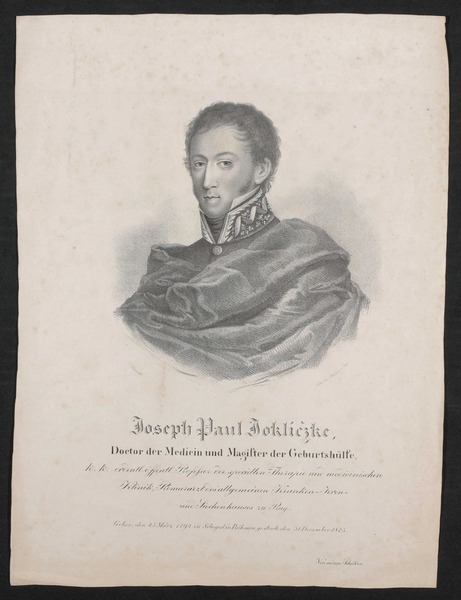 Joseph Paul Jokliczke,
Doctor der Medicin und Magister der Geburtshülfe,
k. k. ordentl. öffentl. Professor der speciellen Therapie und medicinischen
Klinik, Primararzt des allgemeinen Kranken-, Irren-
und Siechenhauses zu Prag.
Geboren, den 25. März 1792 zu in Böhmen, gestorb. den 31. December 1825.
Schüler.